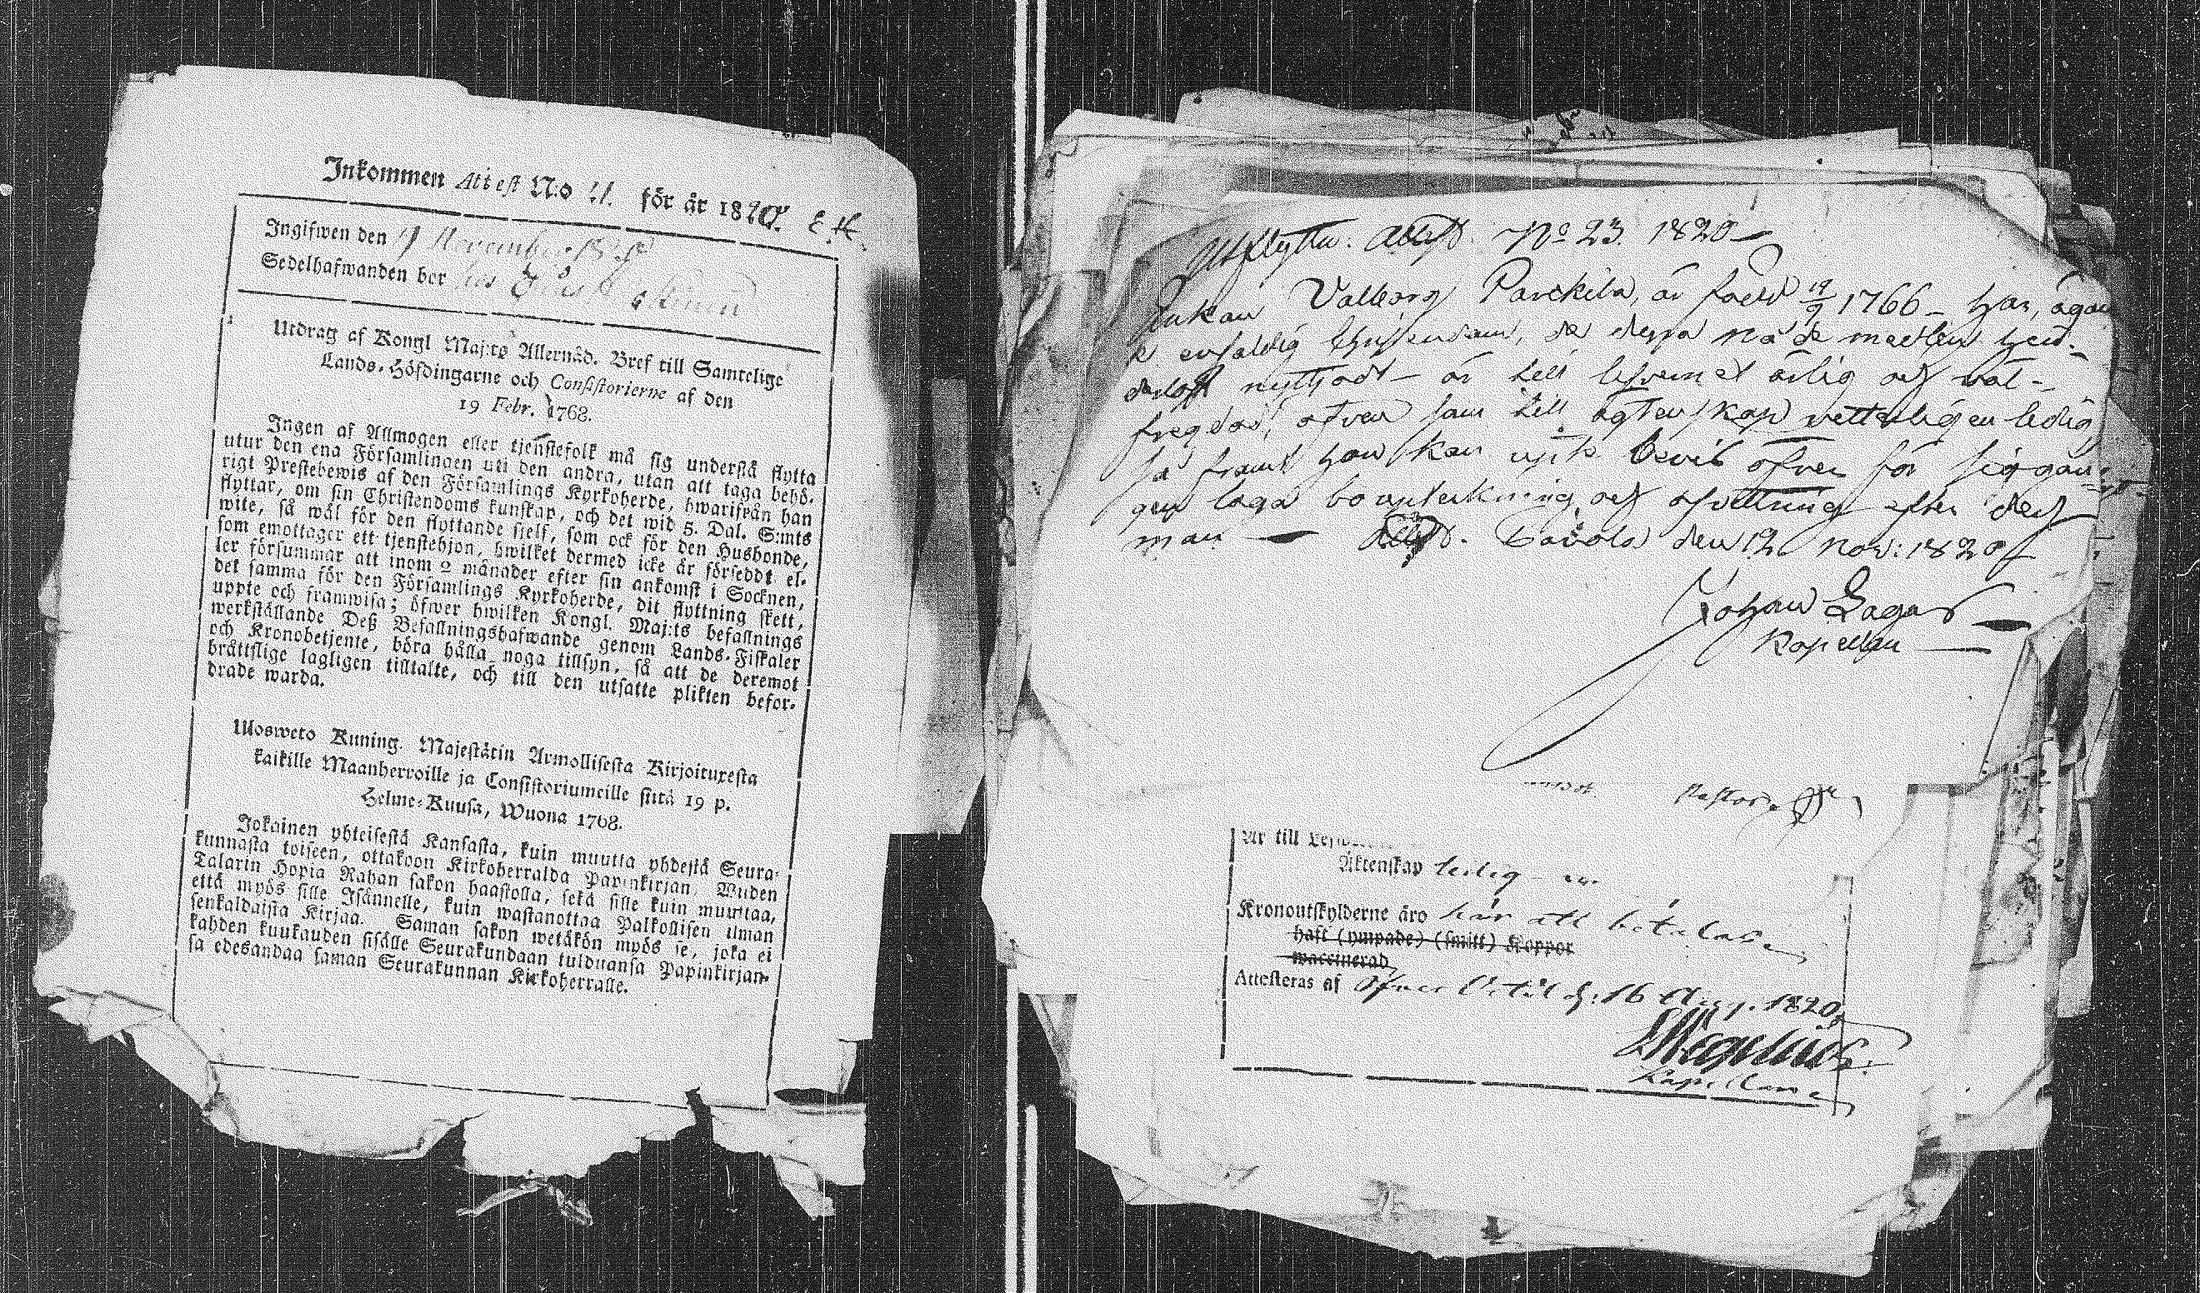 Inkommen Attest N:o 21. för år 1820.
Ingifwen den November 1820
Sedelhafwanden bor hos
Utdrag af Kongl Maj:ts Allernåd. Bref till Samtelige
Lands-Höfdingarne och Consistorierne af den
19 Febr. 1768.
Ingen af Allmogen eller tjenstefolk må sig understå flytta
utur den ena Församlingen uti den andra, utan att taga behö-
rigt Prestebewis af den Församlings Kyrkoherde, hwarifrån han
flyttar, om sin Christendoms kunskap, och det wid 5. Dal. S:mts
wite, så wäl för den flyttande sjelf, som ock för den Husbonde,
som emottager ett tjenstehjon, hwilket dermed icke är försedt el-
ler försummar att inom 2 månader efter sin ankomst i Socknen,
det samma för den Församlings Kyrkoherde, dit flyttning skett,
uppte och framwisa; öfwer hwilken Kongl. Maj:ts befallnings
werkställande Deß Befallningshafwande genom Lands-Fiskaler
och Kronobetjente, böra hålla noga tillsyn, så att de deremot
bråttslige lagligen tilltalte, och till den utsatte plikten befor-
drade warda.
Ulosweto Kuning. Majestätin Armollisesta Kirjoituxesta
kaikille Maanherroille ja Consistoriumeille siitä 19 p.
Helme-Kuusa, Wuona 1768.
Jokainen yhteisestä Kansasta, kuin muutta yhdestä Seura-
kunnasta toiseen, ottakoon Kirkoherralda Papinkirjan, Wiiden
Talarin Hopia Rahan sakon haastolla, sekä sille kuin muuttaa,
että myös sille Isännelle, kuin wastanottaa Palkollisen ilman
senkaldaista Kirjaa. Saman sakon wetäkön myös se, joka ei
kahden kuukauden sisälle Seurakundaan tulduansa Papinkirjan-
sa edesandaa saman Seurakunnan Kirkoherralle.
Utflyttn. Attest. No 23. 1820
Enkan Valborg Parckila, är född 19/9 1766 – har, ägan
de enfaldig Christendom, de dyra nåde medlen
nyttjadt – är till lefvernet ärlig och väl-
fregdad, äfven som till ägtenskap vetterligen ledig
så framt hon kan upte bevis öfver för sig gån-
gen laga bouptekning och afvittring efter dess
man – Attest. den 12 Nov: 1820
Johan Lagus
Kapellan
Pastor
Är till
Äktenskap ledig
Kronoutskylderne äro här att betalas
haft (ympade) (smitt) Koppor
waccinerad
Attesteras af Öfver Vetil d: 16 Aug. 1820
Wegelius
Kapellan